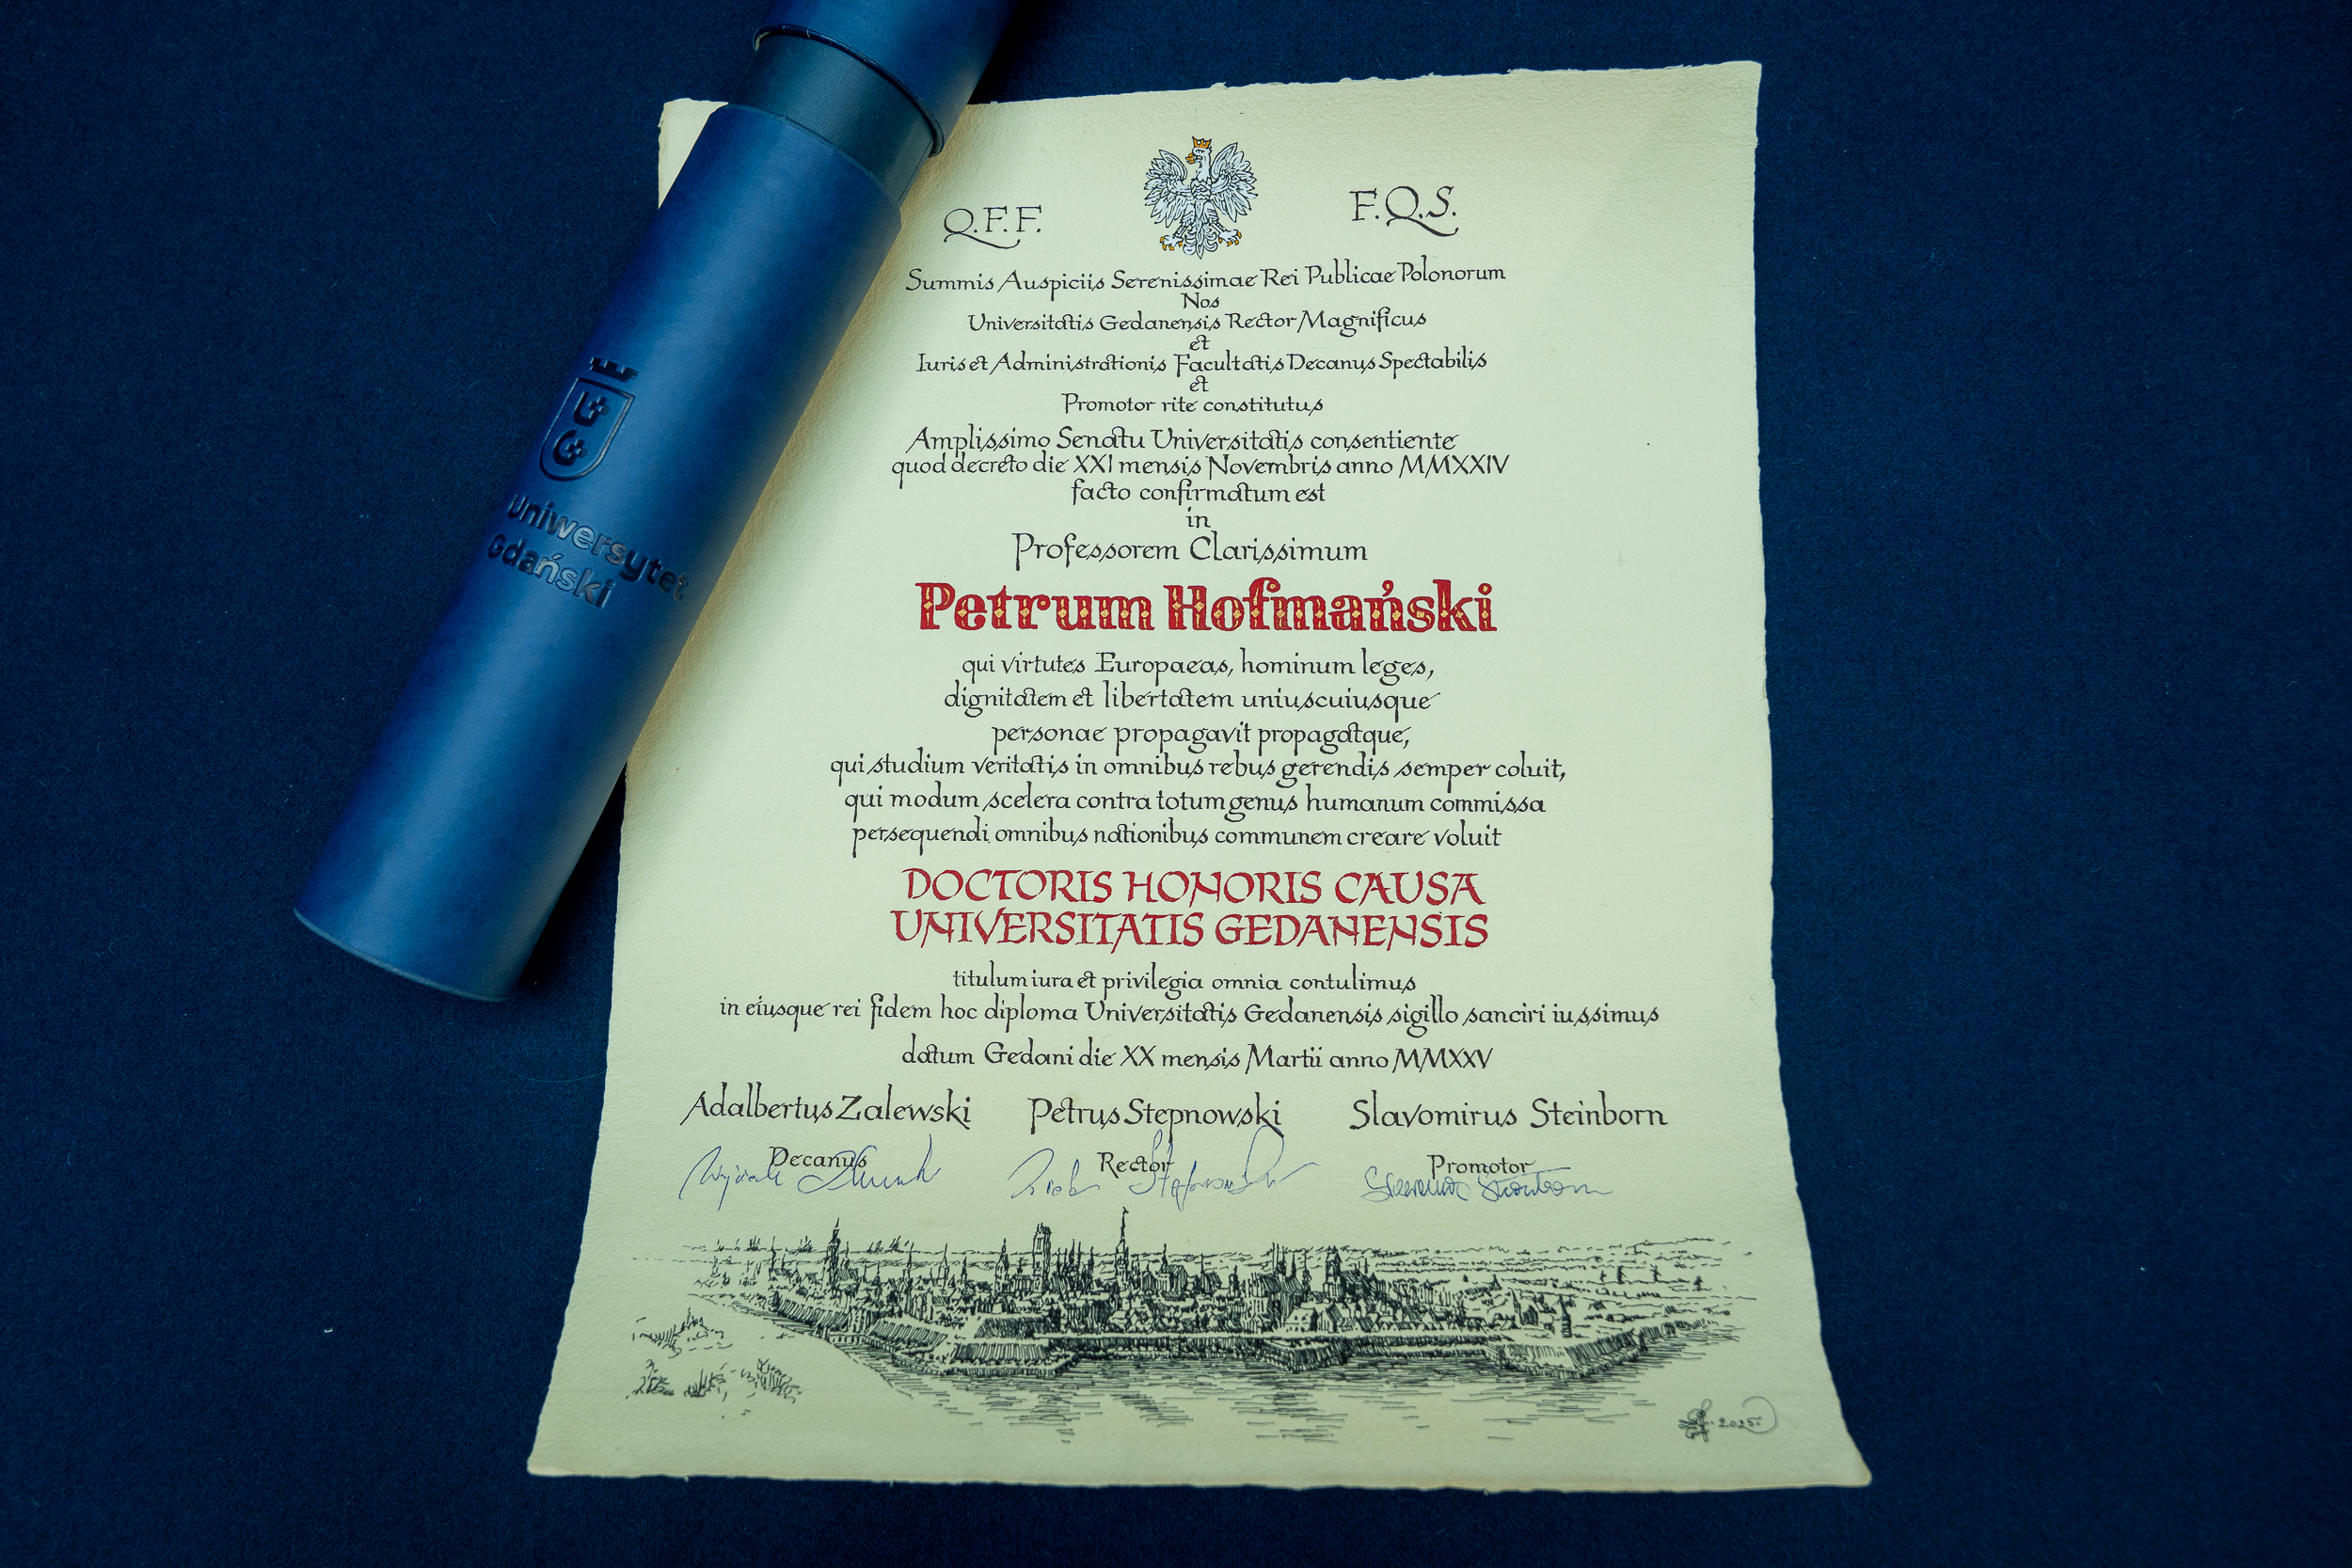 UG
Uniwersytet
Gdański
Q.F.F. F.Q.S.
Summis Auspiciis Serenissimae Rei Publicae Polonorum
Nos
Universitatis Gedanensis Rector Magnificus
et
Iuris et Administrationis Facultatis Decanus Spectabilis
et
Promotor rite constitutus
Amplissimo Senatu Universitatis consentiente
quod decreto die XXI mensis Novembris anno MMXXIV
facto confirmatum est
in
Professorem Clarissimum
Petrum Hofmański
qui virtutes Europaeas, hominum leges,
dignitatem et libertatem uniuscuiusque
personae propagavit propagatque,
qui studium veritatis in omnibus rebus gerendis semper coluit,
qui modum scelera contra totum genus humanum commissa
persequendi omnibus nationibus communem creare voluit
DOCTORIS HONORIS CAUSA
UNIVERSITATIS GEDANENSIS
titulum iura et privilegia omnia contulimus
in eiusque rei fidem hoc diploma Universitatis Gedanensis sigillo sanciri iussimus
datum Gedani die XX mensis Martii anno MMXXV
Adalbertus Zalewski Petrus Stepnowski Slavomirus Steinborn
Decanus Rector Promotor
2025